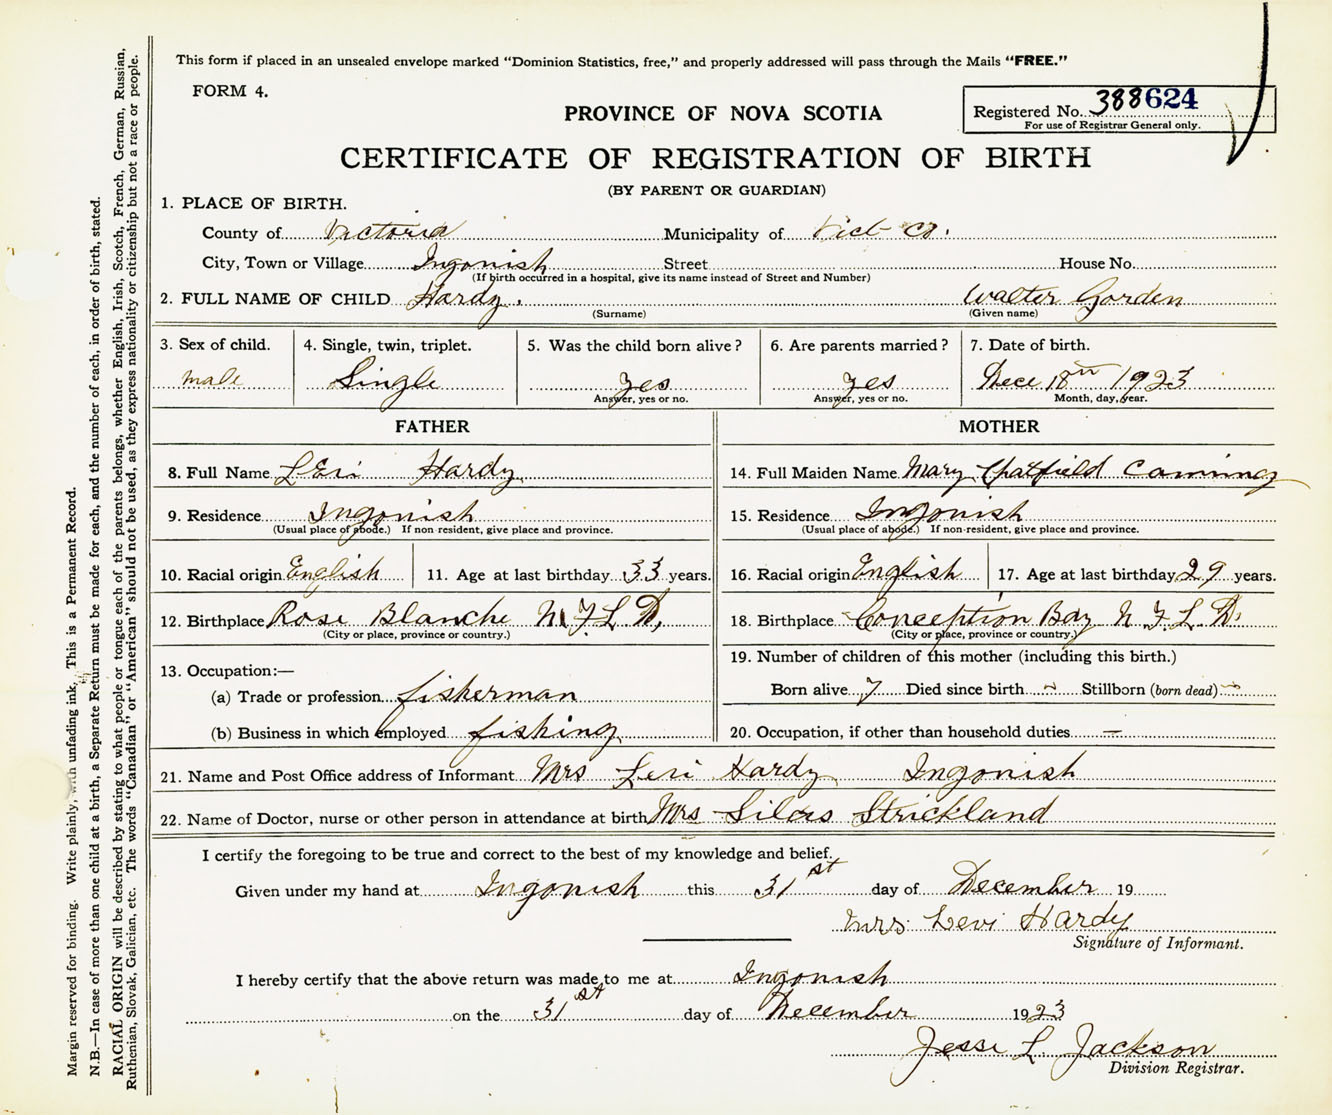 This form if placed in an unsealed envelope marked "Dominion Statistics, free," and properly addressed will pass through the Mails "FREE."
FORM 4.
Registered No. 388624
For use of Registrar General only.
PROVINCE OF NOVA SCOTIA
CERTIFICATE OF REGISTRATION OF BIRTH
(BY PARENT OR GUARDIAN)
1. PLACE OF BIRTH.
County of Victoria Municipality of Vict Co.
City, Town or Village Ingonish Street House No.
(If birth occurred in a hospital, give its name instead of Street and Number)
2. FULL NAME OF CHILD Hardy. Walter Gorden
(Surname) (Given name)
3. Sex of child. 4. Single, twin, triplet. 5. Was the child born alive? 6. Are parents married? 7. Date of birth.
male Single yes yes Dece 18th 1923
Answer, yes or no. Answer, yes or no. Month, day, year.
FATHER
8. Full Name LEvi Hardy
9. Residence Ingonish
(Usual place of abode.) If non-resident, give place and province.
10. Racial origin English 11. Age at last birthday 33 years.
12. Birthplace Rose Blanche N.F.L.D,
(City or place, province or country.)
13. Occupation:—
(a) Trade or profession fisherman
(b) Business in which employed fishing
MOTHER
14. Full Maiden Name Mary Chatfield Comming
15. Residence Ingonish
(Usual place of abode.) If non-resident, give place and province.
16. Racial origin English 17. Age at last birthday 29 years.
18. Birthplace Conception Bay N.F.L.D.
(City or place, province or country.)
19. Number of children of this mother (including this birth.)
Born alive 7 Died since birth ~ Stillborn (born dead) ~
20. Occupation, if other than household duties —
21. Name and Post Office address of Informant Mrs Levi Hardy Ingonish
22. Name of Doctor, nurse or other person in attendance at birth Mrs Silas Strickland
I certify the foregoing to be true and correct to the best of my knowledge and belief.
Given under my hand at Ingonish this 31st day of December 19
Mrs. Levi Hardy
Signature of Informant.
I hereby certify that the above return was made to me at Ingonish
on the 31st day of December 1923
Jesse L. Jackson
Division Registrar.
Margin reserved for binding. Write plainly, with unfading ink, This is a Permanent Record.
N.B.—In case of more than one child at a birth, a Separate Return must be made for each, and the number of each, in order of birth, stated.
RACIAL ORIGIN will be described by stating to what people or tongue each of the parents belongs, whether English, Irish, Scotch, French, German, Russian,
Ruthenian, Slovak, Galician, etc. The words "Canadian" or "American" should not be used, as they express nationality or citizenship but not a race or people.